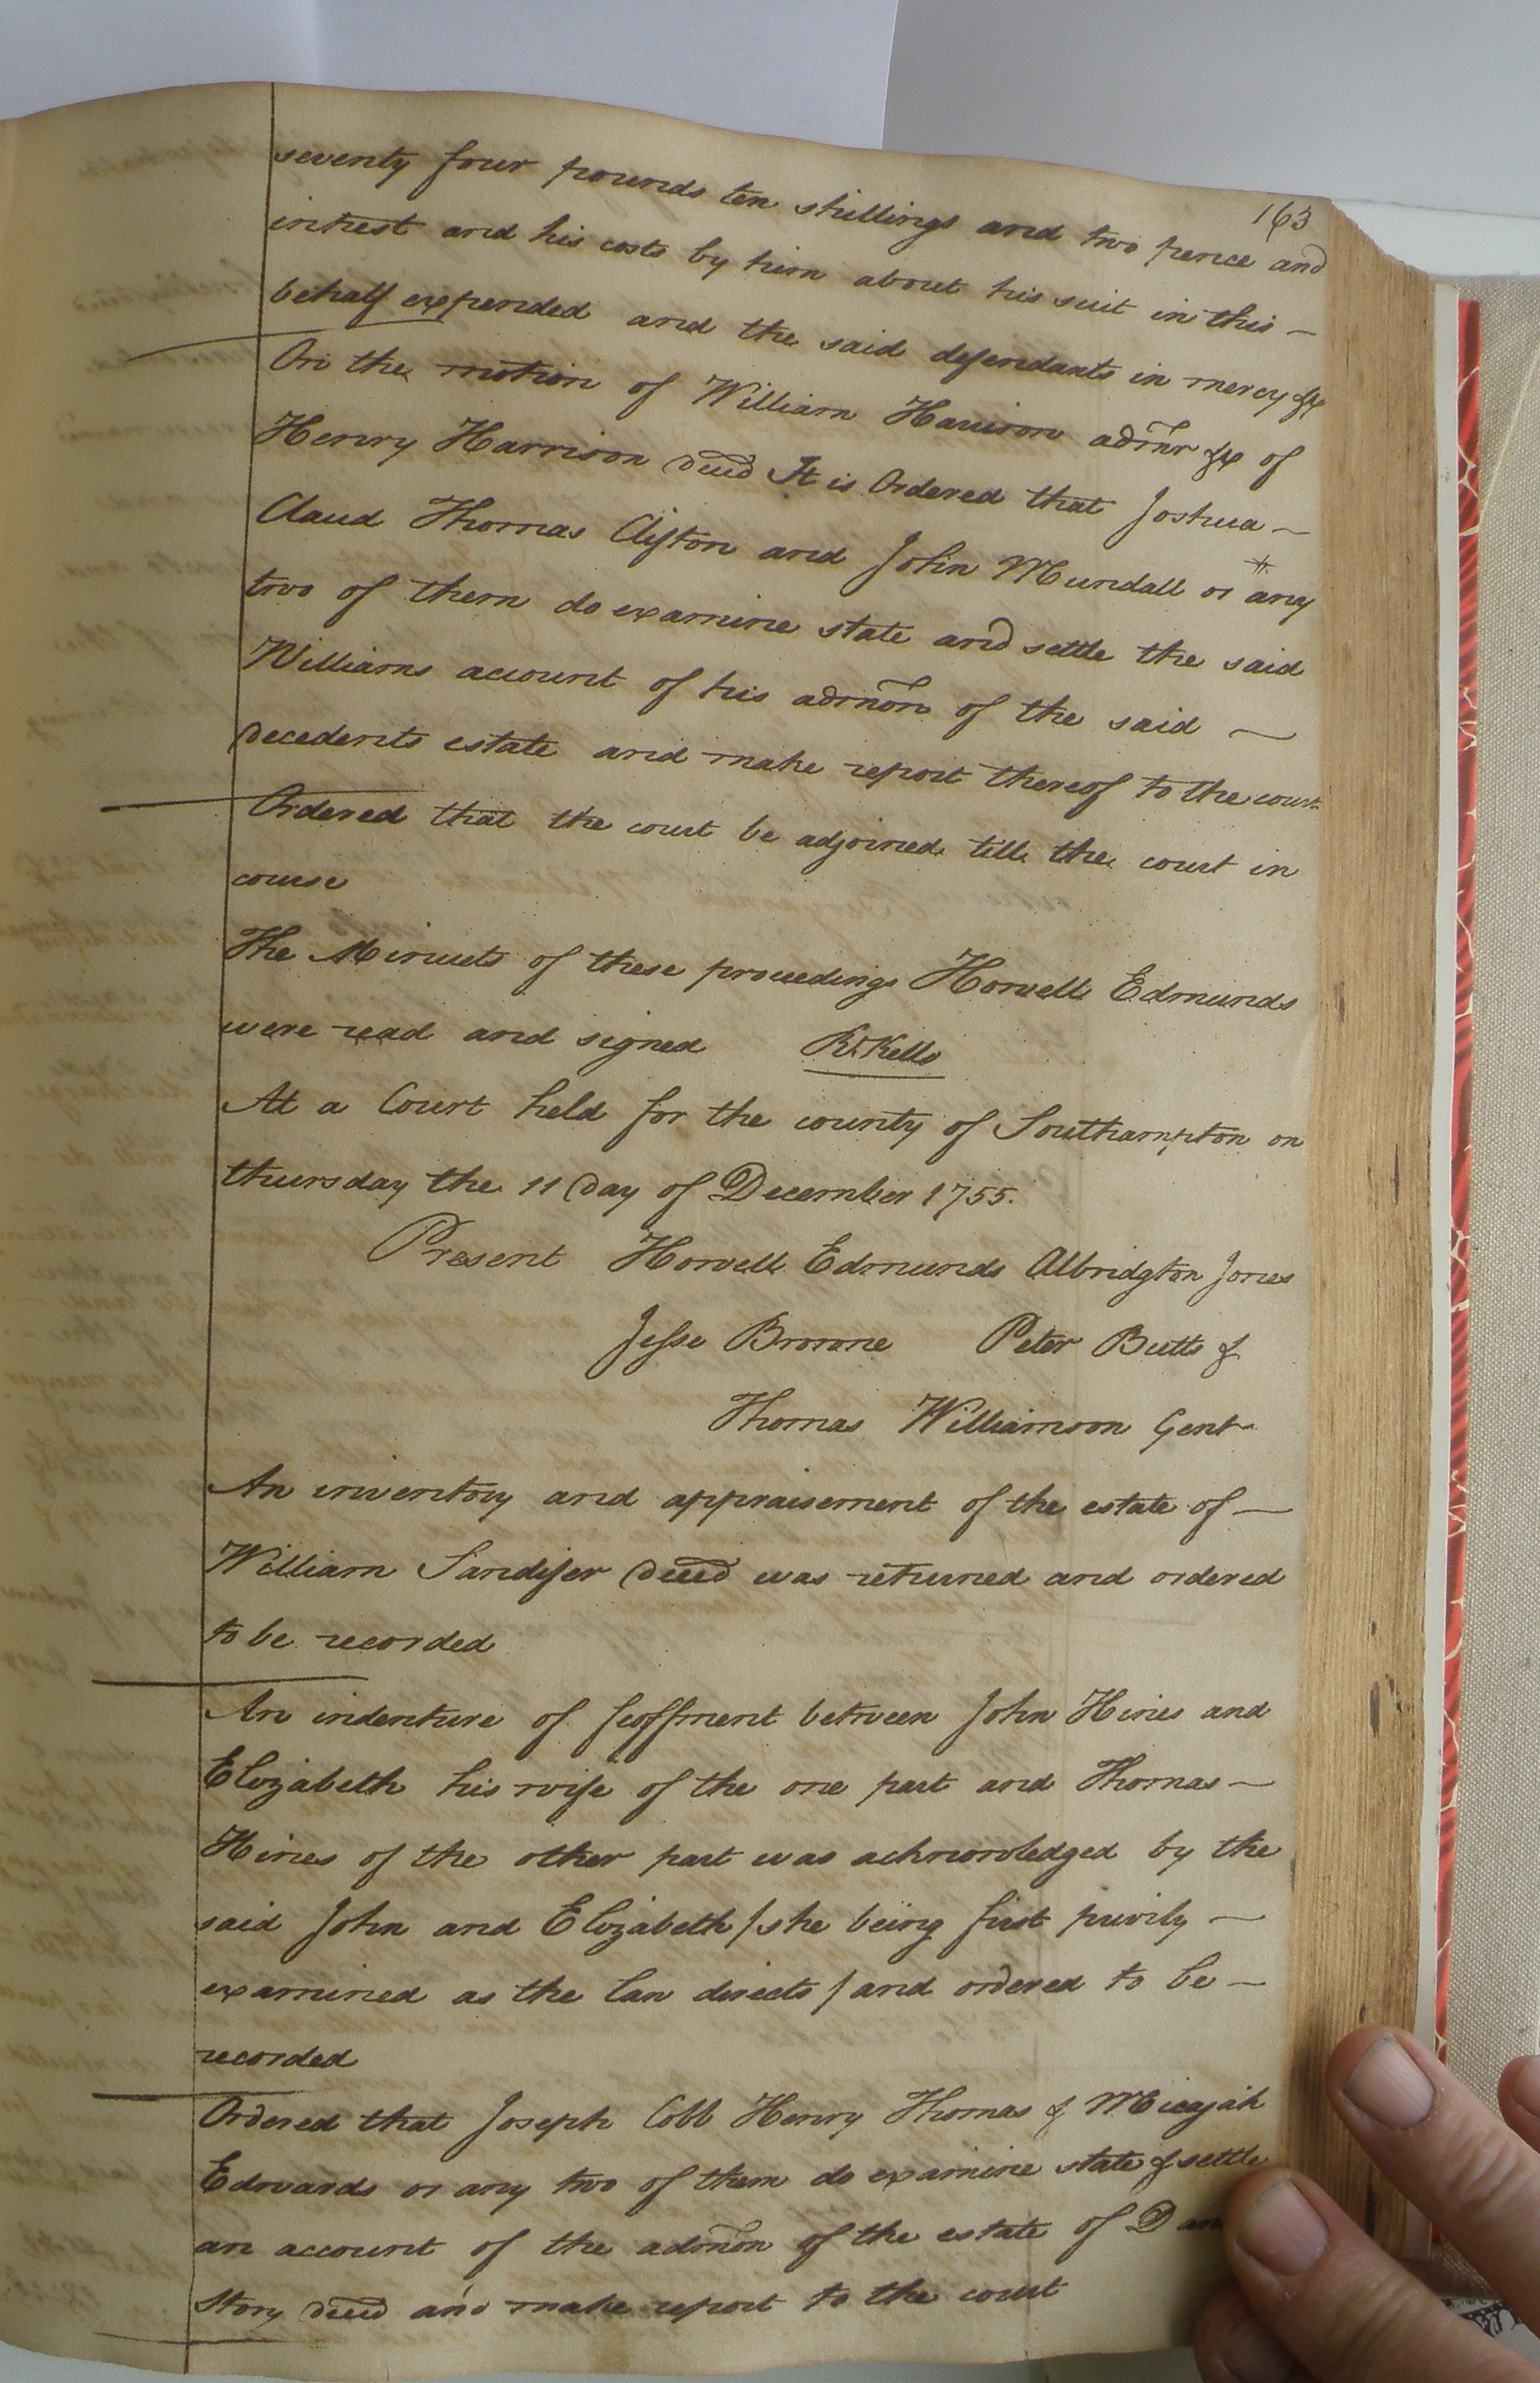 163
seventy four pounds ten shillings and two pence and
intrest and his costs by him about his suit in this —
behalf expended and the said defendants in mercy &c
On the motion of William Harrison admr &c of
Henry Harrison decd It is Ordered that Joshua —
Claud Thomas Clifton and John Mundall or any
two of them do examine state and settle the said
Williams account of his admon of the said —
decedents estate and make report thereof to the court
Ordered that the court be adjoined till the court in
course
The Minuets of these proceedings Howell Edmunds
were read and signed Rd Kello
At a Court held for the county of Southampton on
thursday the 11 day of December 1755.
Present Howell Edmunds Albridgton Jones
Jesse Browne Peter Butts &
Thomas Williamson Gent
An inventory and appraisement of the estate of —
William Sandifer decd was returned and ordered
to be recorded
An indenture of feoffment between John Hines and
Elizabeth his wife of the one part and Thomas —
Hines of the other part was acknowledged by the
said John and Elizabeth / she being first privily —
examined as the law directs / and ordered to be —
recorded
Ordered that Joseph Cobb Henry Thomas & Micajah
Edwards or any two of them do examine state & settle
an account of the admon of the estate of
Story decd and make report to the court